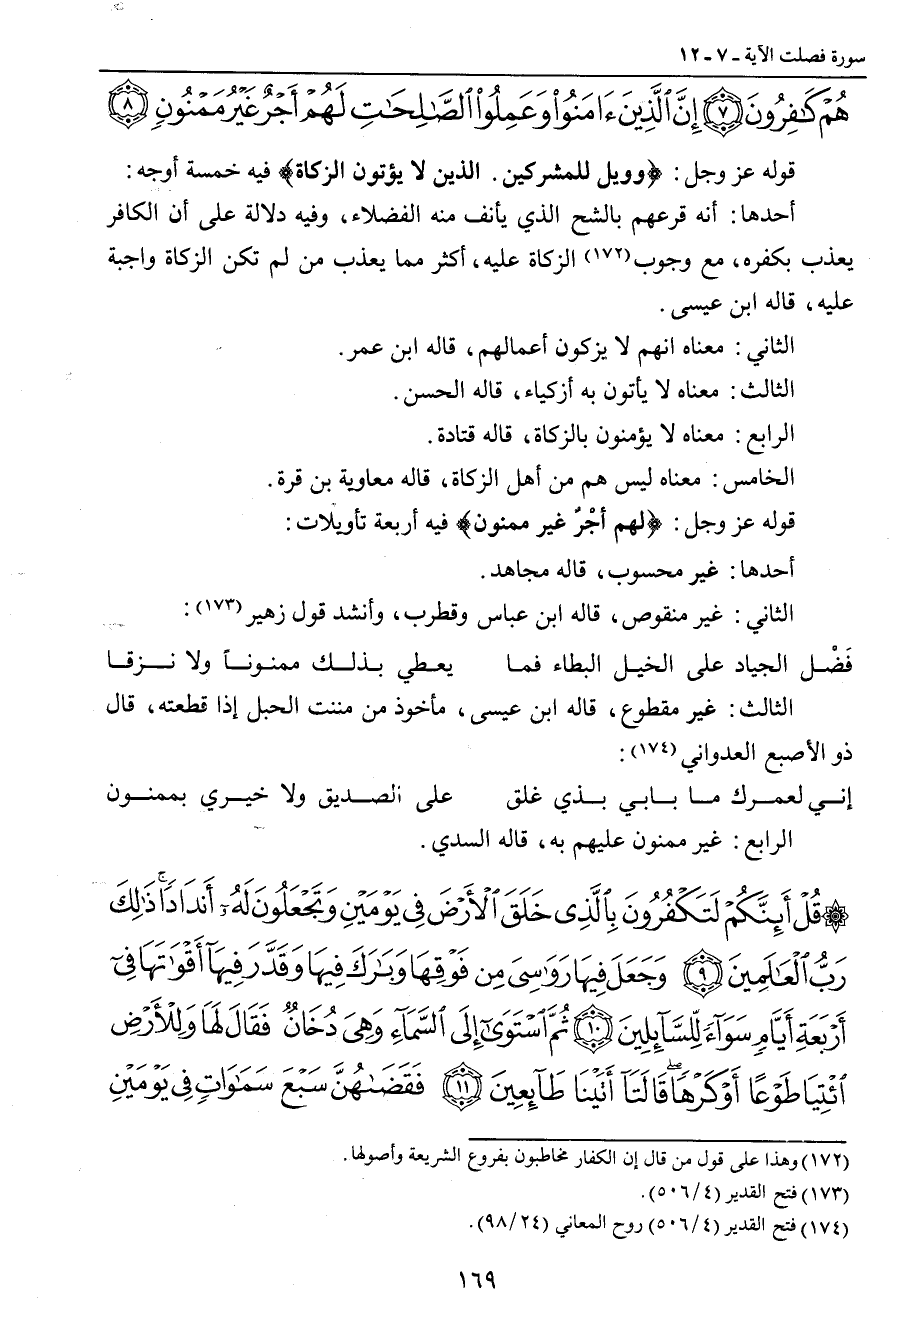 سورة فصلت الآية ـ ٧ ـ ١٢
هُمْ كَٰفِرُونَ ۝٧ إِنَّ ٱلَّذِينَ ءَامَنُوا۟ وَعَمِلُوا۟ ٱلصَّٰلِحَٰتِ لَهُمْ أَجْرٌ غَيْرُ مَمْنُونٍ ۝٨
قوله عز وجل: ﴿وويل للمشركين. الذين لا يؤتون الزكاة﴾ فيه خمسة أوجه:
أحدها: أنه قرعهم بالشح الذي يأنف منه الفضلاء، وفيه دلالة على أن الكافر
يعذب بكفره، مع وجوب(١٧٢) الزكاة عليه، أكثر مما يعذب من لم تكن الزكاة واجبة
عليه، قاله ابن عيسى.
الثاني: معناه انهم لا يزكون أعمالهم، قاله ابن عمر.
الثالث: معناه لا يأتون به أزكياء، قاله الحسن.
الرابع: معناه لا يؤمنون بالزكاة، قاله قتادة.
الخامس: معناه ليس هم من أهل الزكاة، قاله معاوية بن قرة.
قوله عز وجل: ﴿لهم أجْرٌ غير ممنون﴾ فيه أربعة تأويلات:
أحدها: غير محسوب، قاله مجاهد.
الثاني: غير منقوص، قاله ابن عباس وقطرب، وأنشد قول زهير(١٧٣):
فَضْل الجياد على الخيل البطاء فما يعطي بذلك ممنوناً ولا نزقا
الثالث: غير مقطوع، قاله ابن عيسى، مأخوذ من مننت الحبل إذا قطعته، قال
ذو الأصبع العدواني(١٧٤):
إني لعمرك ما بابي بذي غلق على الصديق ولا خيري بممنون
الرابع: غير ممنون عليهم به، قاله السدي.
۞ قُلْ أَئِنَّكُمْ لَتَكْفُرُونَ بِٱلَّذِى خَلَقَ ٱلْأَرْضَ فِى يَوْمَيْنِ وَتَجْعَلُونَ لَهُۥٓ أَندَادًا ۚ ذَٰلِكَ
رَبُّ ٱلْعَٰلَمِينَ ۝٩ وَجَعَلَ فِيهَا رَوَٰسِىَ مِن فَوْقِهَا وَبَٰرَكَ فِيهَا وَقَدَّرَ فِيهَآ أَقْوَٰتَهَا فِىٓ
أَرْبَعَةِ أَيَّامٍ سَوَآءً لِّلسَّآئِلِينَ ۝١٠ ثُمَّ ٱسْتَوَىٰٓ إِلَى ٱلسَّمَآءِ وَهِىَ دُخَانٌ فَقَالَ لَهَا وَلِلْأَرْضِ
ٱئْتِيَا طَوْعًا أَوْ كَرْهًا ۖ قَالَتَآ أَتَيْنَا طَآئِعِينَ ۝١١ فَقَضَىٰهُنَّ سَبْعَ سَمَٰوَاتٍ فِى يَوْمَيْنِ
(١٧٢) وهذا على قول من قال إن الكفار مخاطبون بفروع الشريعة وأصولها.
(١٧٣) فتح القدير (٤/ ٥٠٦).
(١٧٤) فتح القدير (٤/ ٥٠٦) روح المعاني (٢٤/ ٩٨).
١٦٩